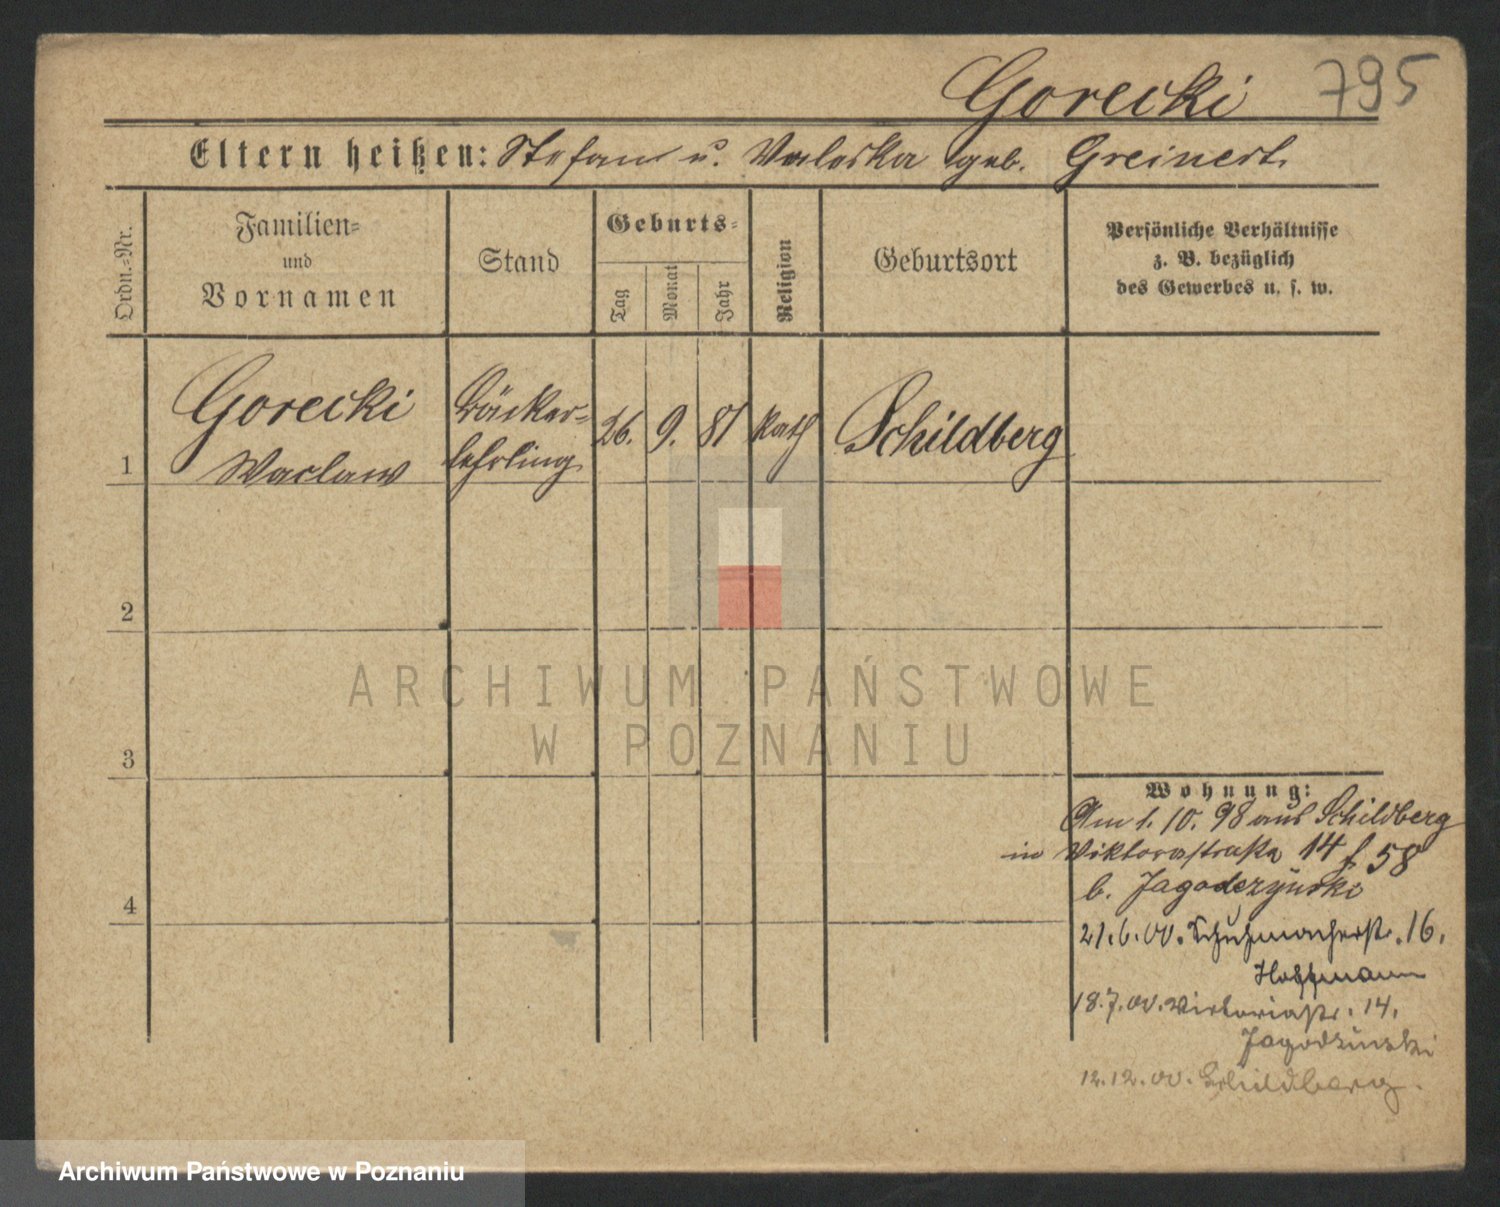 Gorecki 795
Eltern heißen: Stefan u. Valeska geb. Greinert
Ordn.-Nr.
Familien-
und
Vornamen
Stand
Geburts-
Tag
Monat
Jahr
Religion
Geburtsort
Persönliche Verhältnisse
z. B. bezüglich
des Gewerbes u. s. w.
1 Gorecki Bäcker- 26. 9. 81 Kath Schildberg
Waclaw lehrling
2
3
4
Wohnung:
Am 1. 10. 98 aus Schildberg
in Viktoriastraße 14 f 58
b. Jagodczynski
21.6.00. Schuhmacherstr. 16.
Hoffmann
18.7.00. Victoriastr. 14.
Jagodzinski
12.12.00. Schildberg.
ARCHIWUM PAŃSTWOWE
W POZNANIU
Archiwum Państwowe w Poznaniu